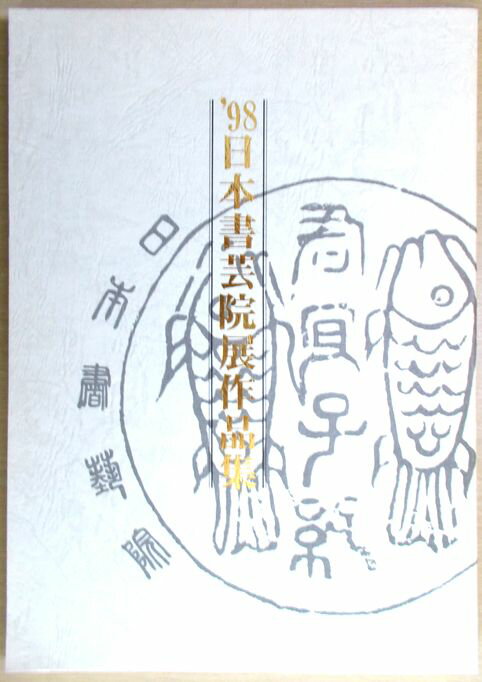 '98日本書芸院展作品集
君宜子孫
日本書藝院